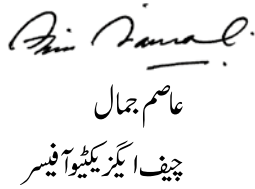 عاصم جمال
چیف ایگزیکٹیو آفیسر